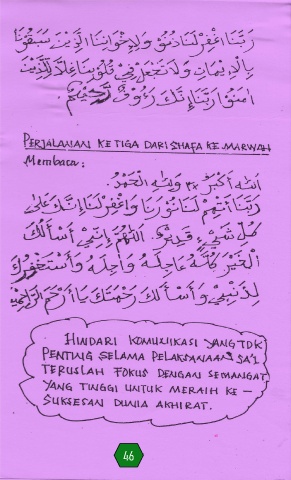 رَبَّنَا اغْفِرْ لَنَا ذُنُوْبَنَا وَلِإِخْوَانِنَا الَّذِيْنَ سَبَقُوْنَا
بِالْإِيْمَانِ وَلَا تَجْعَلْ فِيْ قُلُوْبِنَا غِلًّا لِلَّذِيْنَ
اٰمَنُوْا رَبَّنَا إِنَّكَ رَءُوْفٌ رَحِيْمٌ
PERJALANAN KETIGA DARI SHAFA KE MARWAH
Membaca:
اَللهُ أَكْبَرُ ×٣ وَلِلّٰهِ الْحَمْدُ.
رَبَّنَا أَتْمِمْ لَنَا نُوْرَنَا وَاغْفِرْ لَنَا إِنَّكَ عَلٰى
كُلِّ شَيْءٍ قَدِيْرٌ. اَللّٰهُمَّ إِنِّيْ أَسْأَلُكَ
الْخَيْرَ كُلَّهُ عَاجِلَهُ وَآجِلَهُ وَأَسْتَغْفِرُكَ
لِذَنْبِيْ وَأَسْأَلُكَ رَحْمَتَكَ يَا أَرْحَمَ الرَّاحِمِيْنَ
HINDARI KOMUNIKASI YANG TDK
PENTING SELAMA PELAKSANAAN SA'I
TERUSLAH FOKUS DENGAN SEMANGAT
YANG TINGGI UNTUK MERAIH KE-
SUKSESAN DUNIA AKHIRAT.
46